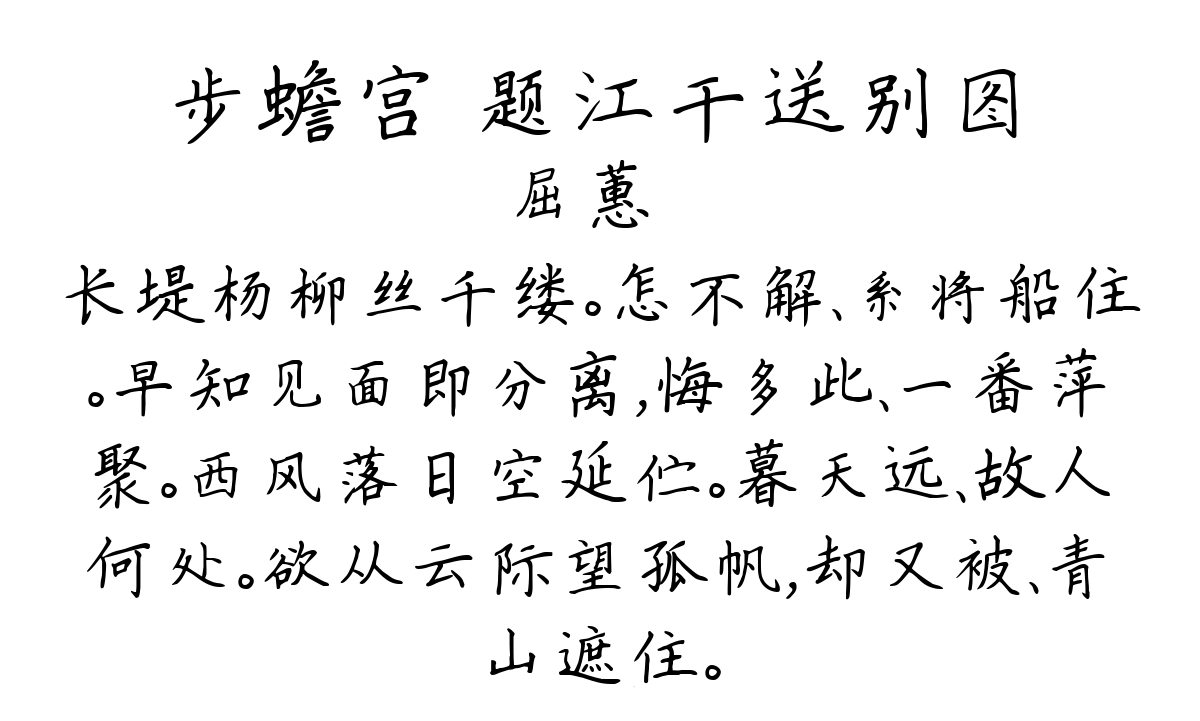 步蟾宫 题江干送别图
屈蕙
长堤杨柳丝千缕。怎不解、系将船住
。早知见面即分离,悔多此、一番萍
聚。西风落日空延伫。暮天远、故人
何处。欲从云际望孤帆,却又被、青
山遮住。